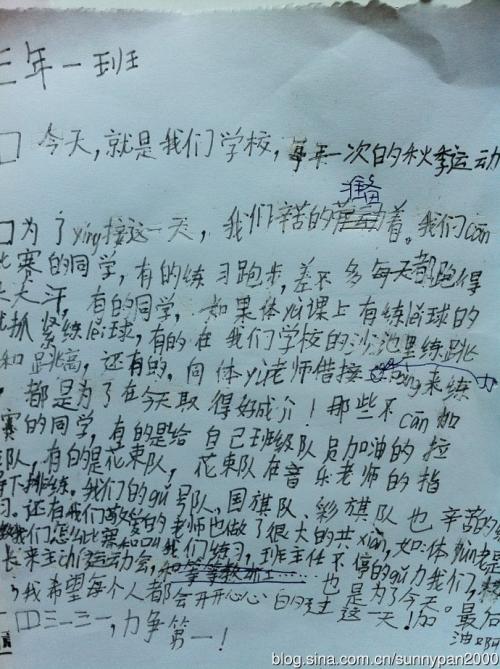 三年一班
今天,就是我们学校,每年一次的秋季运动
准备
为了yíng接这一天,我们辛苦的着。我们cān
比赛的同学,有的练习跑步,差不多每天都跑得
大汗,有的同学,如果体yù课上有练球的
抓紧练球,有的在我们学校的沙池里练跳
和跳高,还有的,向体yù老师借接来练
,都是为了在今天取得好成介!那些不cān加
赛的同学,有的是给自己班级队员加油的拉
队,有的是花束队,花束队在音乐老师的指
下排练。我们的gǔ号队、国旗队、彩旗队也辛苦的练
习。还有我们敬爱的老师也做了很大的共xiàn,如:体yù老是
教我们怎么比赛和叫我们练习,班主任不停的gǔ力我们,校
长来主chí运动会,和等等教师……也是为了今天。最后
,我希望每个人都会开开心心白勺过这一天!加油啊
三一三一,力争第一!
blog.sina.com.cn/sunnypan2000